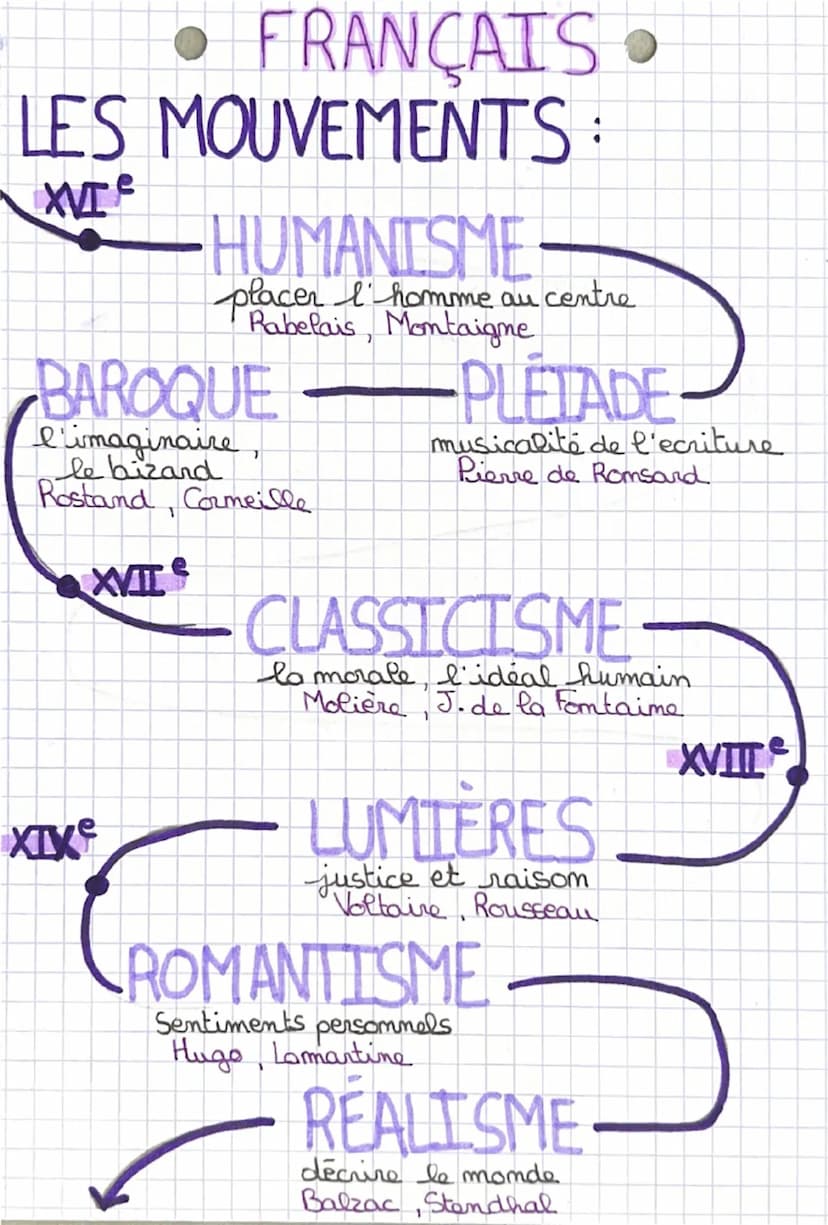 FRANÇAIS
LES MOUVEMENTS :
XVIe
HUMANISME
placer l'homme au centre
Rabelais, Montaigne
PLÉIADE
musicalité de l'ecriture
Pierre de Ronsard
BAROQUE
l'imaginaire,
le bizard
Rostand, Corneille
XVIIe
CLASSICISME
la morale, l'idéal humain
Molière, J. de la Fontaine
XVIIIe
LUMIÈRES
justice et raison
Voltaire, Rousseau
XIXe
ROMANTISME
Sentiments personnels
Hugo, Lamartine
RÉALISME
décrire le monde
Balzac, Stendhal